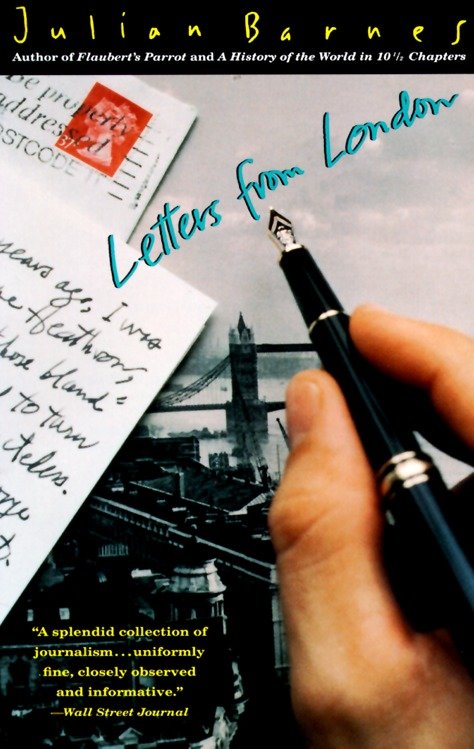 Julian Barnes
Author of Flaubert's Parrot and A History of the World in 10 1/2 Chapters
be properly
addressed
POSTCODE
37
Letters from London
years ago, I was
those bland-
to turn
“A splendid collection of
journalism...uniformly
fine, closely observed
and informative.”
—Wall Street Journal